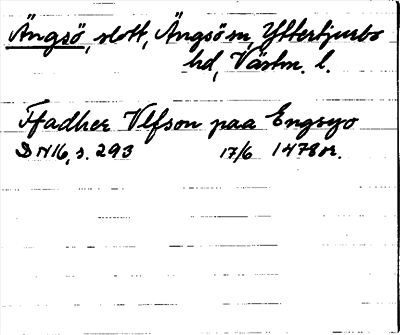 Ängsö, slott, Ängsö sn, Yttertjurbo
hd, Västm. l.
Ffadher Vlfson paa Engsyo
DN16, s. 293 17/6 1478 or.